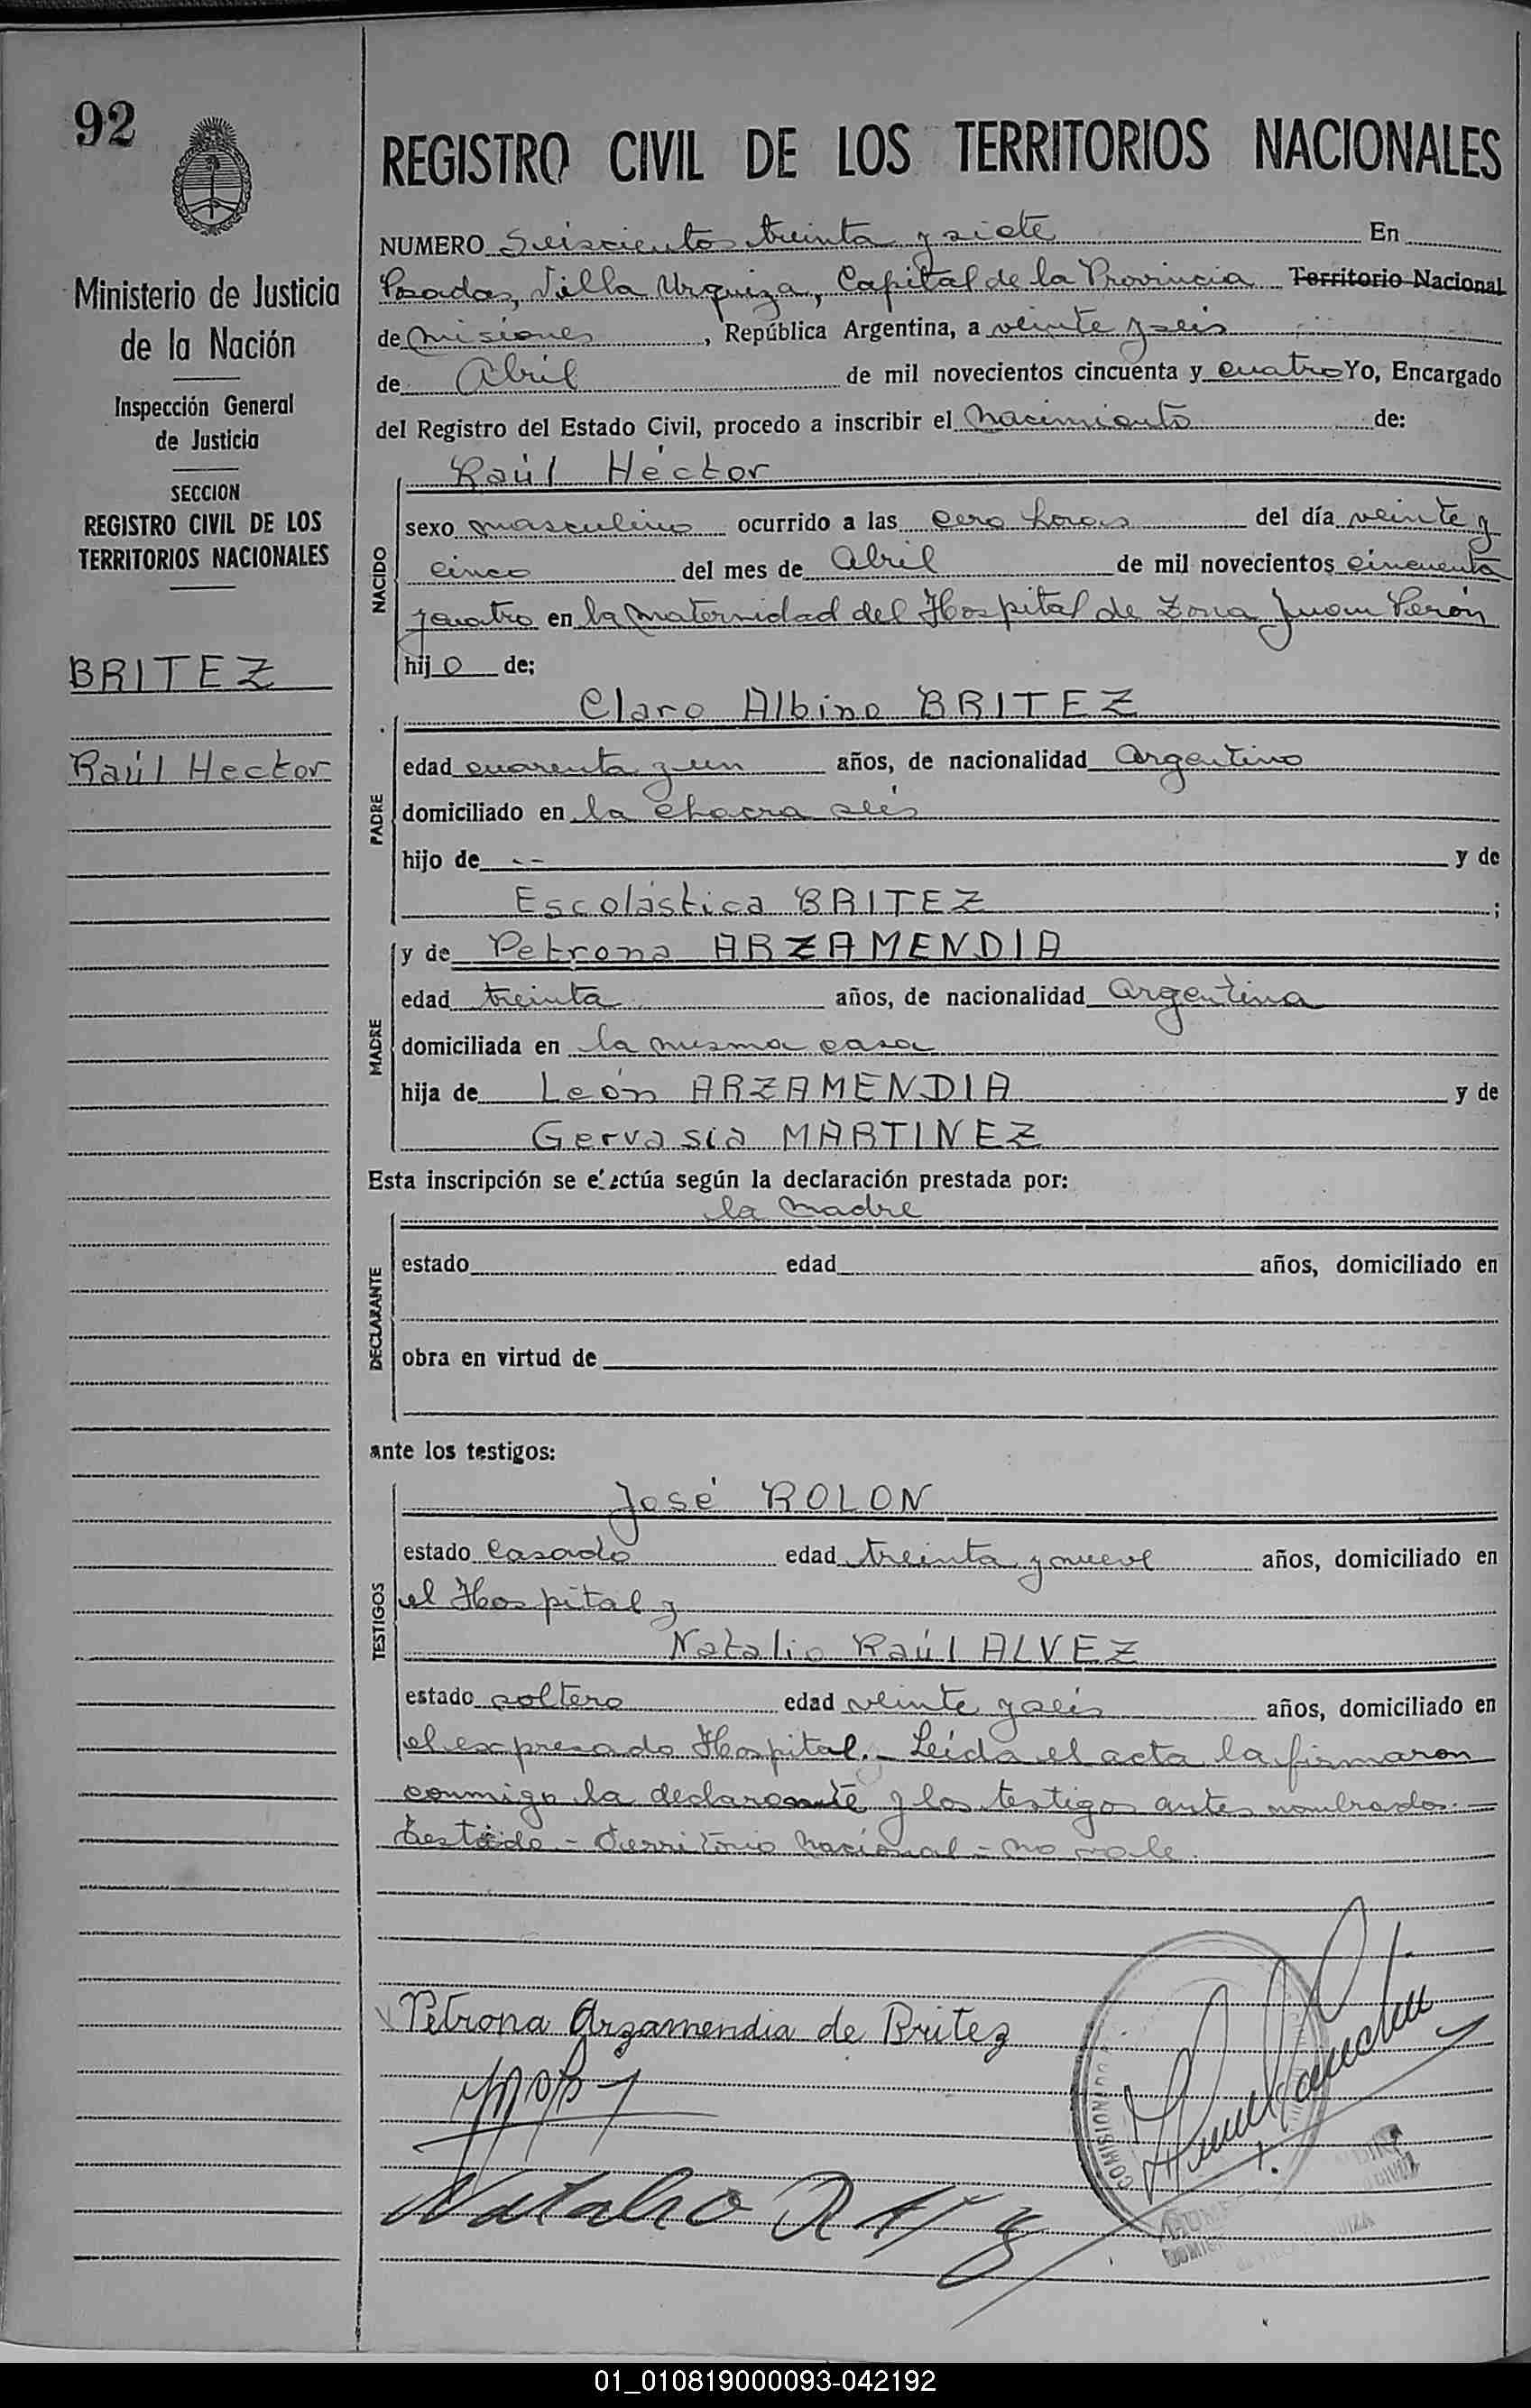 92
Ministerio de Justicia
de la Nación
Inspección General
de Justicia
SECCION
REGISTRO CIVIL DE LOS
TERRITORIOS NACIONALES
BRITEZ
Raúl Hector
REGISTRO CIVIL DE LOS TERRITORIOS NACIONALES
NUMERO Seiscientos treinta y siete En
Posadas, Villa Urquiza, Capital de la Provincia Territorio Nacional
de Misiones, República Argentina, a veinte y seis
de Abril de mil novecientos cincuenta y cuatro Yo, Encargado
del Registro del Estado Civil, procedo a inscribir el Nacimiento de:
NACIDO
Raúl Héctor
sexo masculino ocurrido a las cero horas del día veinte y
cinco del mes de Abril de mil novecientos cincuenta
y cuatro en la Maternidad del Hospital de Zona Juan Perón
hijo de;
PADRE
Claro Albino BRITEZ
edad cuarenta y un años, de nacionalidad Argentino
domiciliado en la chacra seis
hijo de -- y de
Escolástica BRITEZ ;
MADRE
y de Petrona ARZAMENDIA
edad treinta años, de nacionalidad Argentina
domiciliada en la misma casa
hija de León ARZAMENDIA y de
Gervasia MARTINEZ
Esta inscripción se efectúa según la declaración prestada por:
DECLARANTE
la Madre
estado edad años, domiciliado en
obra en virtud de
ante los testigos:
TESTIGOS
José ROLON
estado Casado edad treinta y nueve años, domiciliado en
el Hospital y
Natalio Raúl ALVEZ
estado soltero edad veinte y seis años, domiciliado en
el expresado Hospital.- Leída el acta la firmaron
conmigo la declarante y los testigos antes nombrados.-
Testado - Territorio Nacional - no vale.
Petrona Arzamendia de Britez
Natalio R
COMISION
01_010819000093-042192